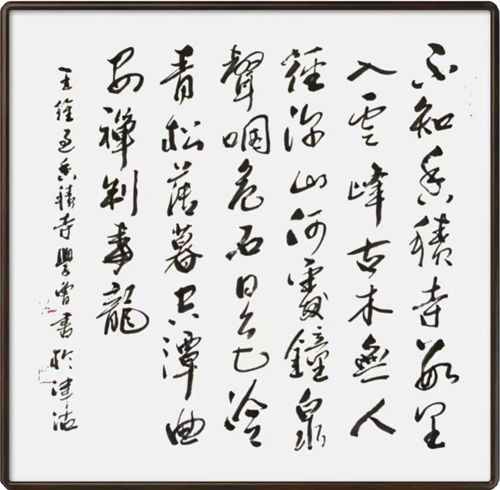 不知香積寺數里
入雲峰古木無人
徑深山何處鐘泉
聲咽危石日色冷
青松薄暮空潭曲
安禪制毒龍
王維過香積寺學曾書於津沽